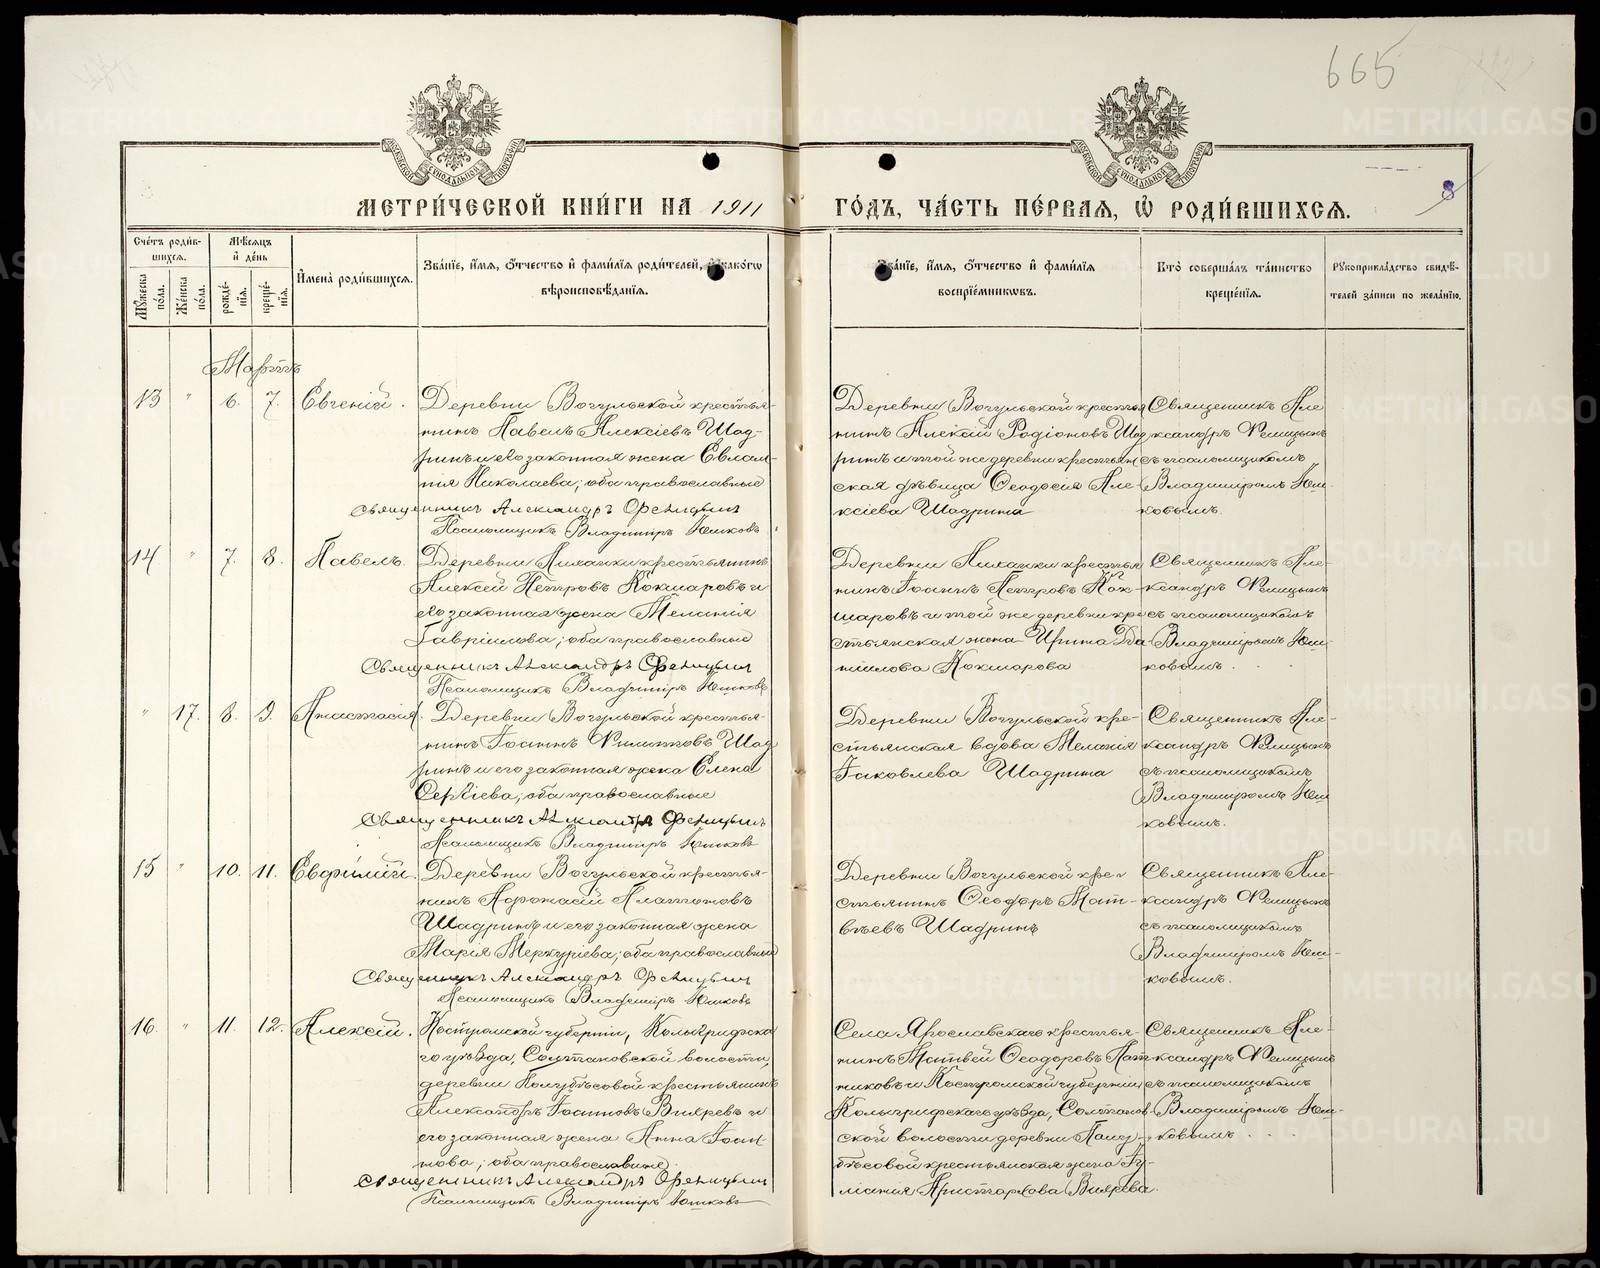 665
8
МЕТРИ́ЧЕСКОЙ КНИ́ГИ НА 1911
ГО́ДЪ, ЧА́СТЬ ПЕ́РВАѦ, Ѡ҆ РОДИ́ВШИХСѦ.
Сче́тъ роди́в-
шихсѧ.
Мꙋ́жеска по́ла.
Же́нска по́ла.
Мѣ́сѧцъ
и҆ де́нь
рожде́-
нїѧ.
креще́-
нїѧ.
И҆мена̀ роди́вшихсѧ.
Зва́нїе, и҆́мѧ, ѻ҆́тчество и҆ фами́лїѧ роди́телей, и҆ како́гѡ
вѣроисповѣ́данїѧ.
Зва́нїе, и҆́мѧ, ѻ҆́тчество и҆ фами́лїѧ
воспрїе́мникѡвъ.
Кто̀ соверша́лъ та́инство
креще́нїѧ.
Рꙋкоприкла́дство свидѣ́-
телей за́писи по жела́нїю.
Мартъ
13 " 6. 7. Евгеній.
Деревни Вогульской крестья-
нинъ Павелъ Алексіевъ Шад-
ринъ и его законная жена Евлам-
пія Николаева; оба православные
Священникъ Александръ Фелицынъ
Псаломщикъ Владиміръ Юшковъ
Деревни Вогульской крестья
нинъ Алексій Родіоновъ Шад
ринъ и той же деревни крестьян
ская дѣвица Ѳеодосія Але-
ксіева Шадрина
Священникъ Але
ксандръ Фелицынъ
съ псаломщикомъ
Владиміромъ Юш-
ковымъ.
14 " 7. 8. Павелъ.
крестьянинъ
Алексій Петровъ Кокшаровъ и
его законная жена Меланія
Гавріилова; оба православные
Священникъ Александръ Фелицынъ
Псаломщикъ Владиміръ Юшковъ
крестья
нинъ Іоаннъ Петровъ Кок-
шаровъ и той же деревни кре
стьянская жена Ирина Да-
ніилова Кокшарова
Священникъ Але-
ксандръ Фелицынъ
съ псаломщикомъ
Владиміромъ Юш-
ковымъ.
" 17. 8. 9. Анастасія.
Деревни Вогульской крестья-
нинъ Іоаннъ Филипповъ Шад
ринъ и его законная жена Елена
Сергіева; оба православные
Священникъ Александръ Фелицынъ
Псаломщикъ Владиміръ Юшковъ
Деревни Вогульской кре-
стьянская вдова Меланія
Іаковлева Шадрина
Священникъ Але-
ксандръ Фелицынъ
съ псаломщикомъ
Владиміромъ Юш
ковымъ.
15 " 10. 11. Евфимій.
Деревни Вогульской крестья-
нинъ Афанасій Платоновъ
Шадринъ и его законная жена
Марія Меркуріева; оба православные
Священникъ Александръ Фелицынъ
Псаломщикъ Владиміръ Юшковъ
Деревни Вогульской кре-
стьянинъ Ѳеодоръ Мат-
вѣевъ Шадринъ
Священникъ Але-
ксандръ Фелицынъ
съ псаломщикомъ
Владиміромъ Юш-
ковымъ.
16. " 11. 12. Алексій.
Костромской губерніи, Кологривска
го уѣзда, волости,
деревни крестьянинъ
Александръ Іоанновъ и
его законная жена Анна Іоан-
нова; оба православные.
Священникъ Александръ Фелицынъ
Псаломщикъ Владиміръ Юшковъ
Села Ярославскаго крестья-
нинъ Матвѣй Ѳеодоровъ
и Костромской губерніи
Кологривскаго уѣзда,
волости деревни
крестьянская жена Іу-
ліанія Аристархова
Священникъ Але-
ксандръ Фелицынъ
съ псаломщикомъ
Владиміромъ Юш-
ковымъ.
METRIKI.GASO-URAL.RU